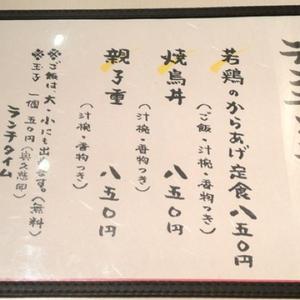 若鶏のからあげ定食 八五〇円
（ご飯・汁椀・香物つき）
焼鳥丼 八五〇円
（汁椀・香物つき）
親子重 八五〇円
（汁椀・香物つき）
※ご飯は大・小にも出来ます。（無料）
※玉子 一個 五〇円（奥久慈卵）
ランチタイム